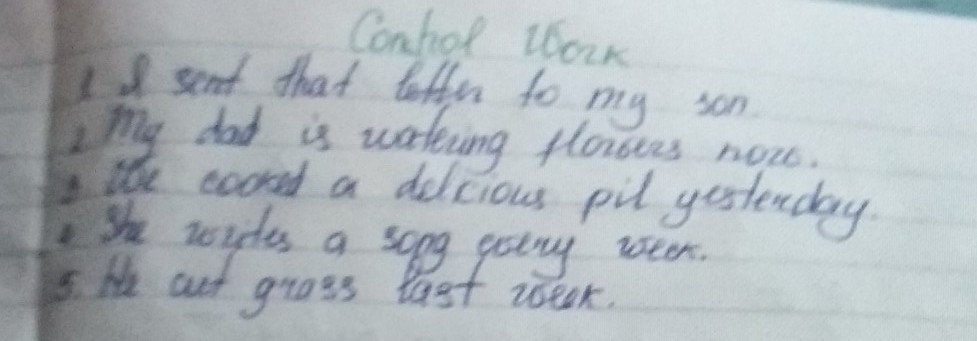 Control Work
1. I sent that letter to my son.
2. My dad is watering flowers now.
3. We cooked a delcious pil yesterday.
4. She writes a song every week.
5. He cut grass last week.